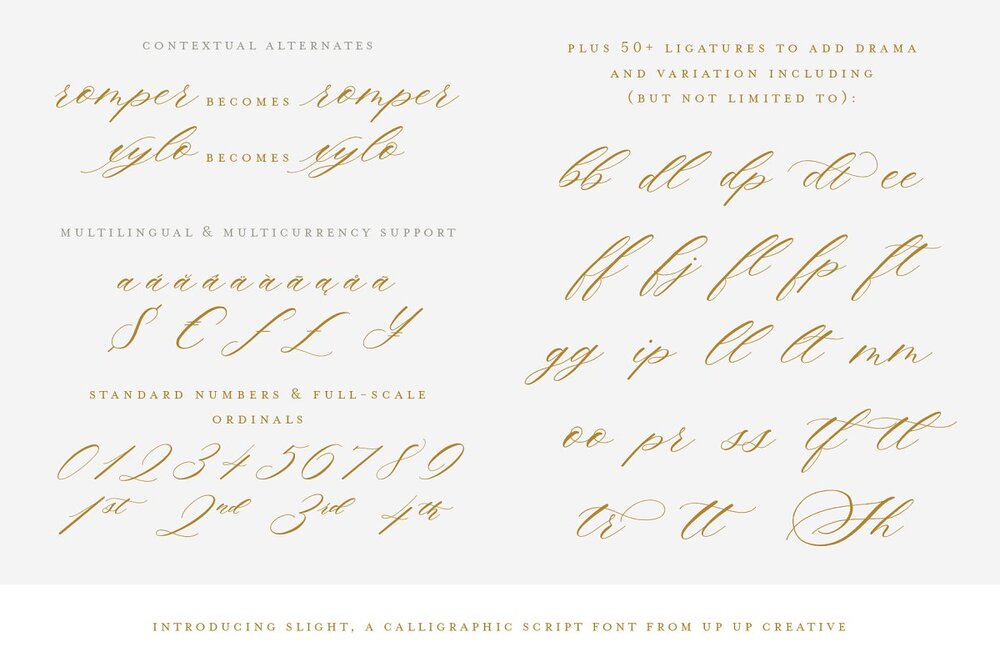 CONTEXTUAL ALTERNATES
romper BECOMES romper
xylo BECOMES xylo
MULTILINGUAL & MULTICURRENCY SUPPORT
$ € ƒ £ ¥
STANDARD NUMBERS & FULL-SCALE
ORDINALS
0123456789
1st 2nd 3rd 4th
PLUS 50+ LIGATURES TO ADD DRAMA
AND VARIATION INCLUDING
(BUT NOT LIMITED TO):
bb dl dp dt ee
ff fj fl fp ft
gg ip ll lt mm
oo pr ss tf tt
tr tt Sh
INTRODUCING SLIGHT, A CALLIGRAPHIC SCRIPT FONT FROM UP UP CREATIVE